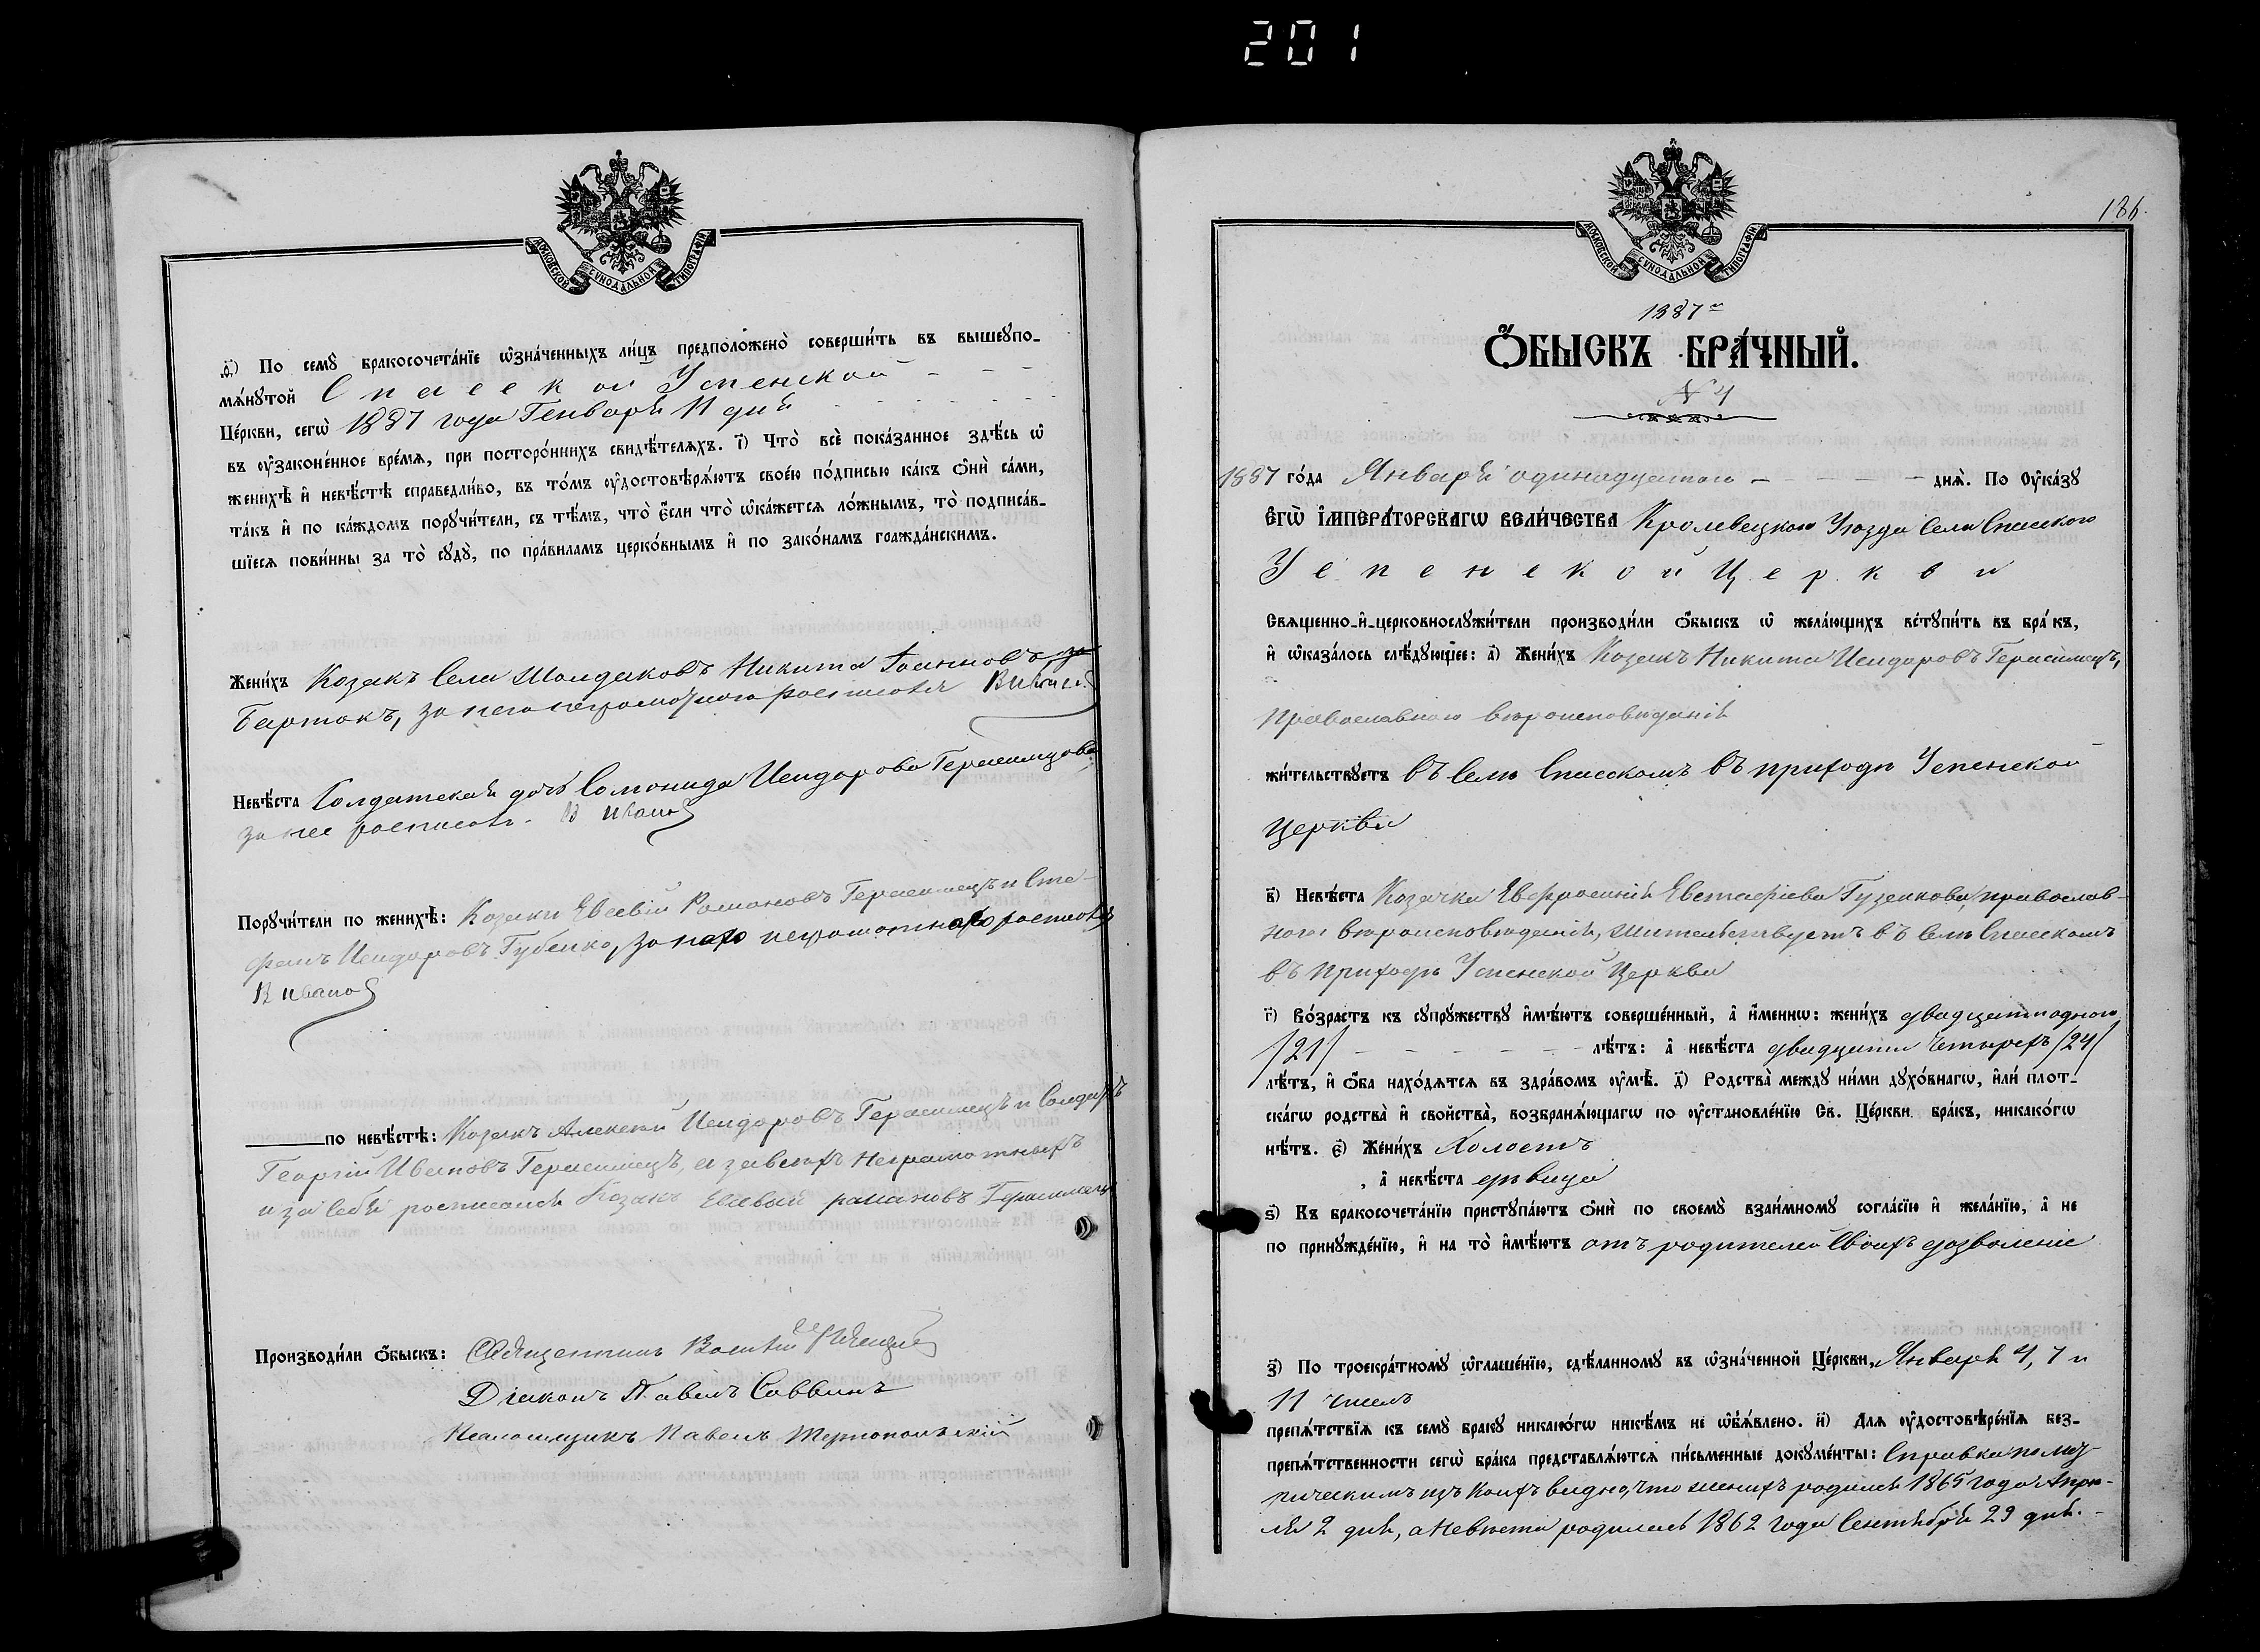 201
МОСКОВСКОЙ СѴНОДАЛЬНОЙ ТИПОГРАФІИ
ѳ҃) По семꙋ̀ бракосочета́нїе ѡ҆зна́ченныхъ ли́цъ предположено̀ соверши́ть въ вышеꙋпо-
мѧ́нꙋтой Спасской Успенской - - -
Це́ркви, сегѡ̀ 1887 года Генваря 11 дня
въ ᲂу҆зако́ненное вре́мѧ, при посторо́ннихъ свидѣ́телѧхъ. і҃) Что̀ всѐ пока́занное здѣ́сь ѡ҆
женихѣ̀ и҆ невѣ́стѣ справедли́во, въ то́мъ ᲂу҆достовѣрѧ́ютъ свое́ю по́дписью ка́къ ѻ҆нѝ са́ми,
та́къ и҆ по ка́ждомъ порꙋчи́тели, съ тѣ́мъ, что̀ є҆́сли что̀ ѡ҆ка́жетсѧ ло́жнымъ, то̀ подписа́в-
шїесѧ пови́нны за то̀ сꙋдꙋ̀, по пра́виламъ церко́внымъ и҆ по зако́намъ гражда́нскимъ.
Жени́хъ Козакъ Села Шалдаковъ Никита Іоанновъ, за
Бартокъ, за него неграмотного росписался В Иванов
Невѣ́ста Солдатская дочь Соломонида Исидорова Герасимцова
за нее росписалъ. В Иванов
Порꙋчи́тели по женихѣ̀: Козаки Евсевій Романовъ Герасимецъ и Сте-
фанъ Исидоровъ Губенко, за него неграмотнаго росписался
В Иванов
по невѣ́стѣ: Козакъ Алексѣй Исидоровъ Герасимецъ и Солдатъ
Георгій Ивановъ Герасимецъ, а за всѣхъ неграмотныхъ
и за себя росписался Козакъ Евсевий романовъ Герасимецъ
Производи́ли ѻ҆́быскъ: Священникъ Василій
Діаконъ Павелъ Саввинъ
Псаломщикъ Павелъ
186.
МОСКОВСКОЙ СѴНОДАЛЬНОЙ ТИПОГРАФІИ
1887 г
Ѻ҆́БЫСКЪ БРА́ЧНЫЙ.
№ 4
1887 го́да Января одинадцатого - - - - - днѧ̀. По Оу҆ка́зꙋ
Є҆ГѠ̀ І҆МПЕРА́ТОРСКАГѠ ВЕЛИ́ЧЕСТВА Кролевецкого Уѣзда Села Спасского
Успенской Церкви
Свѧще́нно-и҆-церковнослꙋжи́тели производи́ли ѻ҆́быскъ ѡ҆ жела́ющихъ встꙋпи́ть въ бра́къ,
и҆ ѡ҆каза́лось слѣ́дꙋющее: а҃) Жени́хъ Козакъ Никита Исидоровъ Герасимецъ,
Православного вѣроисповѣданія
жи́тельствꙋетъ въ Селѣ Спасскомъ въ приходѣ Успенской
Церкви
в҃) Невѣ́ста Козачка Евфросинія Евстафіева Гузенкова, православ-
ного вѣроисповѣданія, жительствуетъ въ Селѣ Спасскомъ
въ Приходѣ Успенской Церкви
г҃) Во́зрастъ къ сꙋпрꙋ́жествꙋ и҆мѣ́ютъ соверше́нный, а҆ и҆́меннѡ: жени́хъ двадцати одного
/21/ - - - - - - лѣ́тъ: а҆ невѣ́ста двадцати четырехъ /24/
лѣ́тъ, и҆ ѻ҆́ба нахо́дѧтсѧ въ здра́вомъ ᲂу҆мѣ̀. д҃) Родства̀ междꙋ ни́ми дꙋхо́внагѡ, и҆лѝ плот-
ска́гѡ родства̀ и҆ сво́йства, возбранѧ́ющагѡ по ᲂу҆становле́нїю Св. Це́ркви бра́къ, никако́гѡ
нѣ́тъ. є҃) Жени́хъ Холостъ
, а҆ невѣ́ста дѣвица
ѕ҃) Къ бракосочета́нїю пристꙋпа́ютъ ѻ҆нѝ по своемꙋ̀ взаи́мномꙋ согла́сїю и҆ жела́нїю, а҆ не
по принꙋжде́нїю, и҆ на то̀ и҆мѣ́ютъ отъ родителей своихъ дозволеніе
з҃) По троекра́тномꙋ ѡ҆глаше́нїю, сдѣ́ланномꙋ въ ѡ҆зна́ченной Це́ркви, Января 4, 7 и
11 чиселъ
препѧ́тствїѧ къ семꙋ̀ бра́кꙋ никако́гѡ никѣ́мъ не ѡ҆б̾ѧ́влено. и҃) Длѧ ᲂу҆достовѣре́нїѧ без-
препѧ́тственности сегѡ̀ бра́ка представлѧ́ютсѧ пи́сьменные докꙋме́нты: Справка по мет-
рическимъ изъ коихъ видно, что женихъ родился 1865 года Апрѣ-
ля 2 дня, а Невѣста родилась 1862 года Сентября 29 дня. -